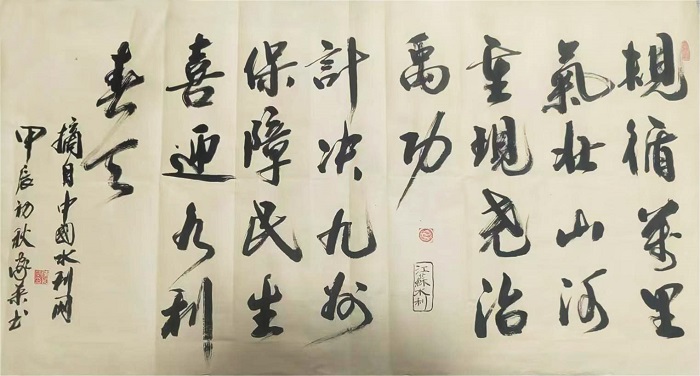 規循萬里
氣壯山河
重現堯治
禹功
計决九州
保障民生
喜迎水利
春天
摘自中國水利网
甲辰初秋
书
江蘇水利